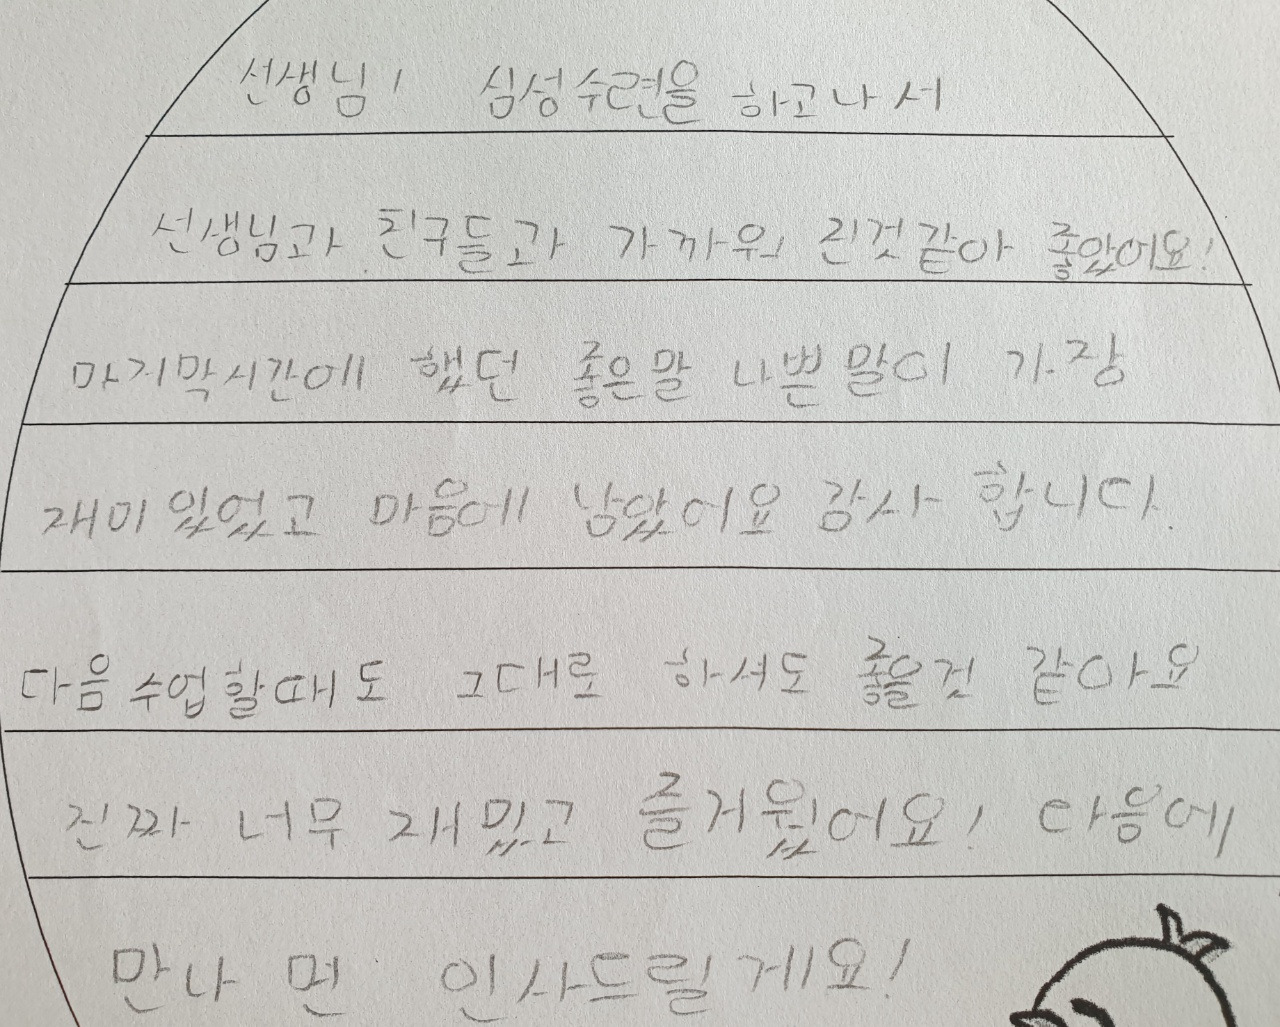 선생님! 심성수련을 하고나서
선생님과 친구들과 가까워 진것같아 좋았어요!
마지막시간에 했던 좋은말 나쁜말이 가장
재미있었고 마음에 남았어요 감사합니다.
다음수업할때도 그대로 하셔도 좋을것 같아요
진짜 너무 재밌고 즐거웠어요! 다음에
만나면 인사드릴게요!